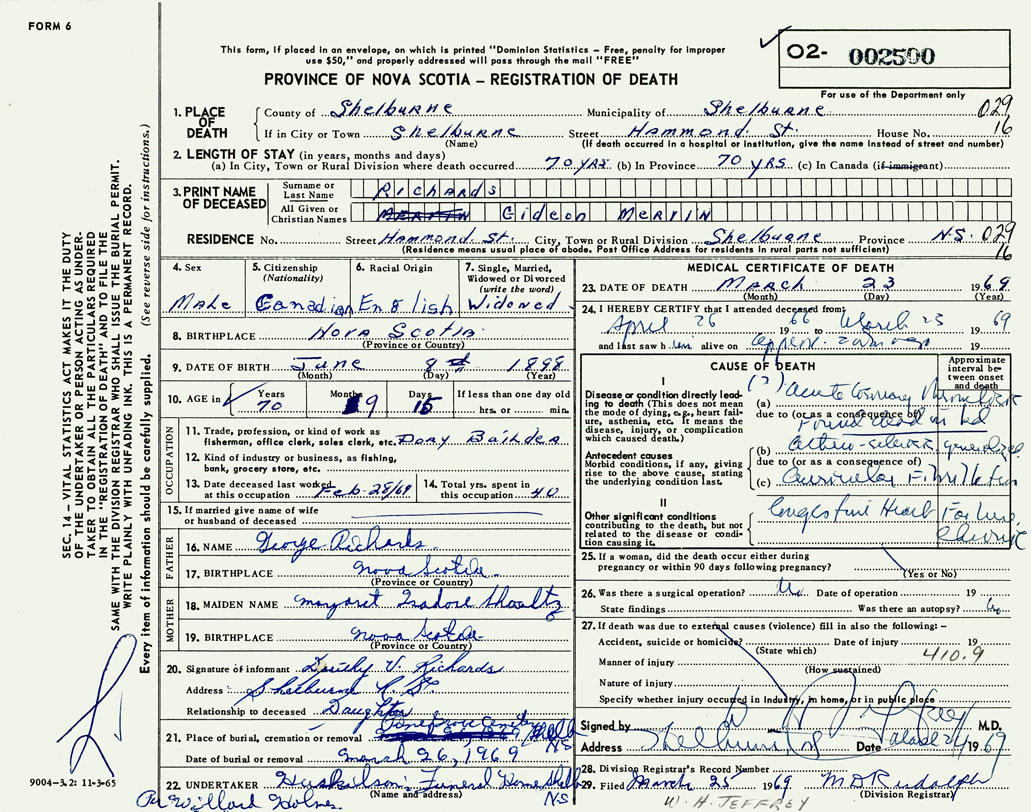 FORM 6
This form, if placed in an envelope, on which is printed "Dominion Statistics – Free, penalty for improper
use $50," and properly addressed will pass through the mail "FREE"
PROVINCE OF NOVA SCOTIA – REGISTRATION OF DEATH
02- 002500
For use of the Department only
1. PLACE OF DEATH
County of Shelburne Municipality of Shelburne 029
If in City or Town Shelburne Street Hammond St. House No. 16
(Name) (If death occurred in a hospital or institution, give the name instead of street and number)
2. LENGTH OF STAY (in years, months and days)
(a) In City, Town or Rural Division where death occurred 70 yrs (b) In Province 70 yrs (c) In Canada (if immigrant)
3. PRINT NAME OF DECEASED
Surname or Last Name Richards
All Given or Christian Names Gideon Mervin
RESIDENCE No. Street Hammond St. City, Town or Rural Division Shelburne Province N.S. 029
(Residence means usual place of abode. Post Office Address for residents in rural parts not sufficient) 16
4. Sex
Male
5. Citizenship (Nationality)
Canadian
6. Racial Origin
English
7. Single, Married, Widowed or Divorced (write the word)
Widowed
8. BIRTHPLACE Nova Scotia
(Province or Country)
9. DATE OF BIRTH June 8th 1898
(Month) (Day) (Year)
10. AGE in Years 70 Months 9 Days 15 If less than one day old
hrs. or min.
OCCUPATION
11. Trade, profession or kind of work as
fisherman, office clerk, sales clerk, etc. Dory Builder
12. Kind of industry or business, as fishing,
bank, grocery store, etc.
13. Date deceased last worked
at this occupation Feb-28/69
14. Total yrs. spent in
this occupation 40
15. If married give name of wife
or husband of deceased
FATHER
16. NAME George Richards
17. BIRTHPLACE Nova Scotia
(Province or Country)
MOTHER
18. MAIDEN NAME Margaret Isadore
19. BIRTHPLACE Nova Scotia
(Province or Country)
20. Signature of informant V. Richards
Address Shelburne
Relationship to deceased Daughter
21. Place of burial, cremation or removal Pine Grove NS
Date of burial or removal March 26, 1969
22. UNDERTAKER Huskilson Funeral Home NS
(Name and address)
Per Willard Holmes
MEDICAL CERTIFICATE OF DEATH
23. DATE OF DEATH March 23 1969
(Month) (Day) (Year)
24. I HEREBY CERTIFY that I attended deceased from
April 26 1966 to March 23 1969
and last saw him alive on 19
CAUSE OF DEATH
Approximate interval between onset and death
I
Disease or condition directly leading to death (This does not mean
the mode of dying, e.g., heart failure, asthenia, etc. It means the
disease, injury, or complication
which caused death.)
(?)
(a) Acute Coronary Thrombosis
due to (or as a consequence of)
Found dead in bed
Antecedent causes
Morbid conditions, if any, giving
rise to the above cause, stating
the underlying condition last.
(b) generalized
due to (or as a consequence of)
(c) Auricular Fibrillation
II
Other significant conditions
contributing to the death, but not
related to the disease or condition causing it.
Congestive Heart Failure
Chronic
25. If a woman, did the death occur either during
pregnancy or within 90 days following pregnancy?
(Yes or No)
26. Was there a surgical operation? No Date of operation 19
State findings Was there an autopsy? No
27. If death was due to external causes (violence) fill in also the following:—
Accident, suicide or homicide? Date of injury 19
(State which) 410.9
Manner of injury
(How sustained)
Nature of injury
Specify whether injury occurred in industry, in home, or in public place
Signed by M.D.
Address Shelburne NS Date 1969
28. Division Registrar's Record Number
29. Filed March 25 1969 M D Rudolph
(Division Registrar)
W. H. JEFFREY
SEC. 14 – VITAL STATISTICS ACT MAKES IT THE DUTY
OF THE UNDERTAKER OR PERSON ACTING AS UNDER-
TAKER TO OBTAIN ALL THE PARTICULARS REQUIRED
IN THE "REGISTRATION OF DEATH" AND TO FILE THE
SAME WITH THE DIVISION REGISTRAR WHO SHALL ISSUE THE BURIAL PERMIT.
WRITE PLAINLY WITH UNFADING INK. THIS IS A PERMANENT RECORD.
Every item of information should be carefully supplied. (See reverse side for instructions.)
9004–3.2: 11-3-65